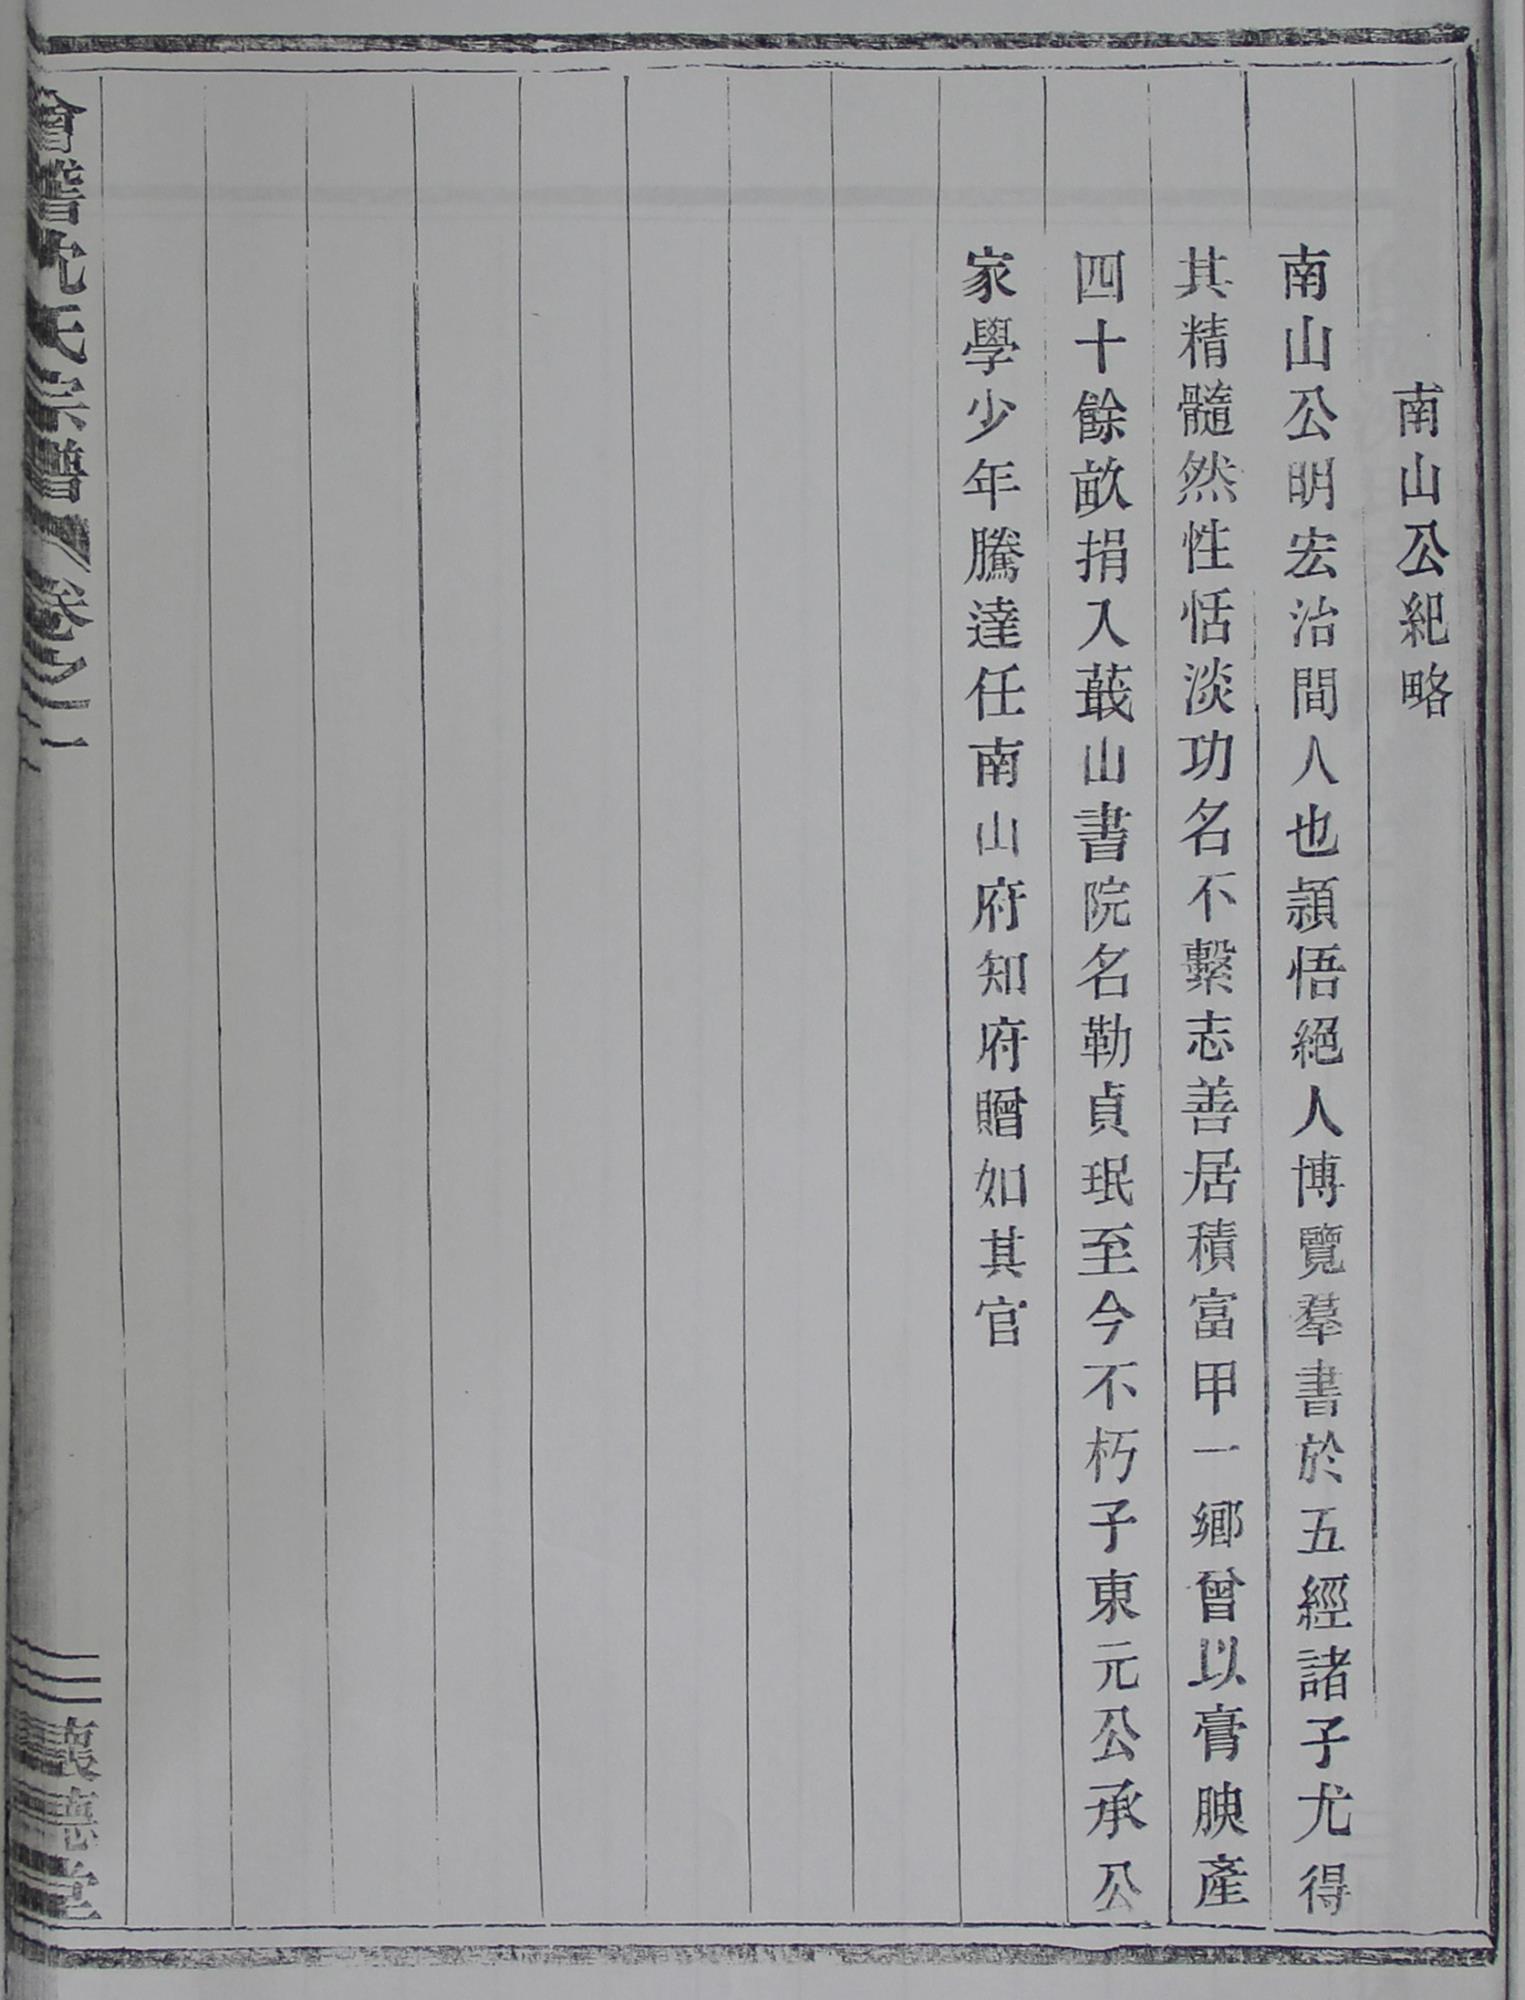 南山公紀略
南山公明宏治間人也頴悟絕人博覽羣書於五經諸子尤得
其精髓然性恬淡功名不繫志善居積富甲一鄉曾以膏腴產
四十餘畝捐入蕺山書院名勒貞珉至今不朽子東元公承公
家學少年騰達任南山府知府贈如其官
會稽沈氏宗譜 卷之
懷德堂